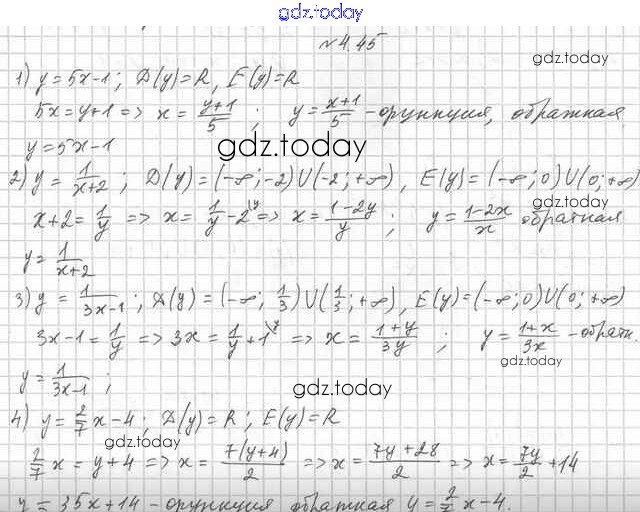 gdz.today
№4.45
gdz.today
1) y=5x-1; D(y)=R, E(y)=R
5x=y+1 => x = (y+1)/5 ; y = (x+1)/5 - функция, обратная
y=5x-1
gdz.today
2) y = 1/(x+2) ; D(y)=(-∞;-2)U(-2;+∞), E(y)=(-∞;0)U(0;+∞)
x+2 = 1/y => x = 1/y - 2\y => x = (1-2y)/y ; y = (1-2x)/x обратная
y = 1/(x+2)
3) y = 1/(3x-1) ; D(y)=(-∞; 1/3)U(1/3;+∞), E(y)=(-∞;0)U(0;+∞)
3x-1 = 1/y => 3x = 1/y + 1\y => x = (1+y)/3y ; y = (1+x)/3x - обратн.
gdz.today
y = 1/(3x-1) ;
gdz.today
4) y = 2/7 x-4; D(y)=R; E(y)=R
gdz.today
2/7 x = y+4 => x = 7(y+4)/2 => x = (7y+28)/2 => x = 7y/2 +14
y = 3,5x+14 - функция обратная y = 2/7 x-4.